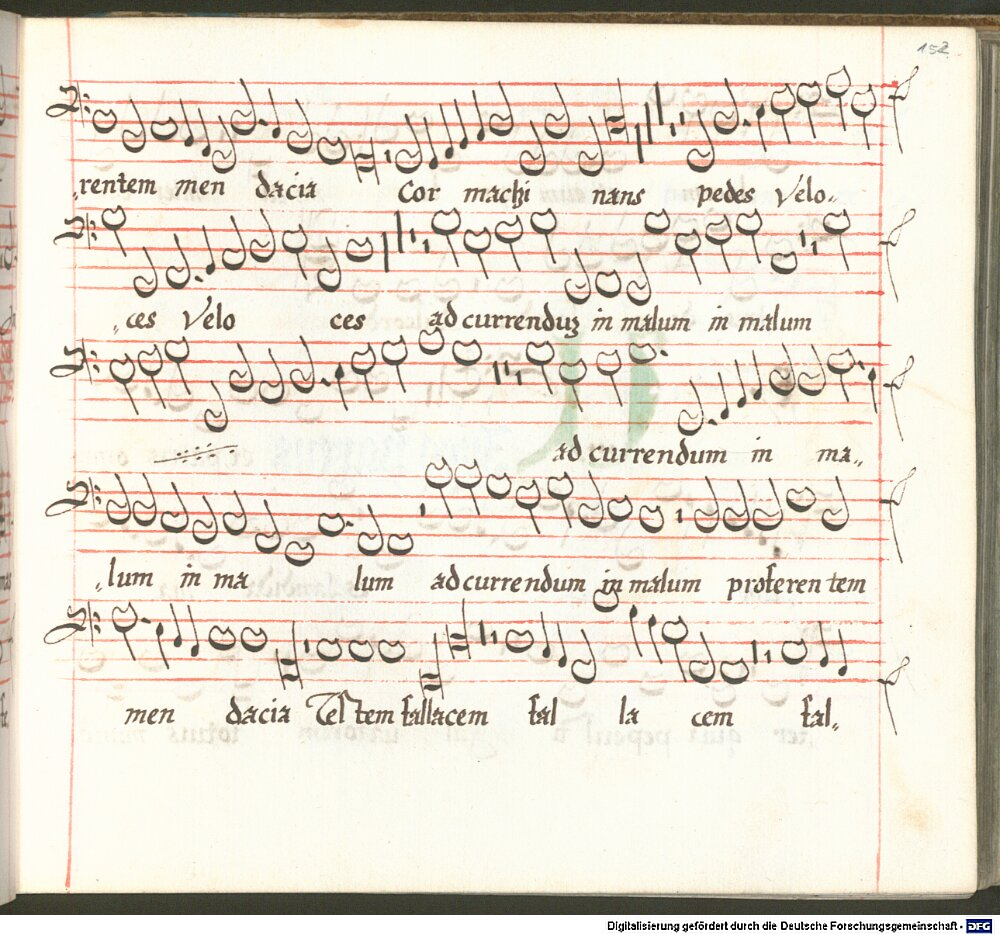 152
„rentem men dacia Cor machi nans pedes Velo„
„ces Velo ces ad currenduʒ in malum in malum
ad currendum in ma„
„lum in ma lum ad currendum in malum proferen tem
men dacia Tes tem fallacem fal la cem fal„
Digitalisierung gefördert durch die Deutsche Forschungsgemeinschaft - DFG